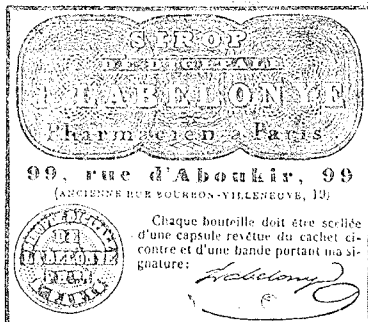 SIROP
DE DIGITALE
LABELONYE
Pharmacien a Paris
99, rue d'Aboukir, 99
(ANCIENNE RUE BOURBON-VILLENEUVE, 19)
Chaque bouteille doit être scellée
d'une capsule revêtue du cachet ci-
contre et d'une bande portant ma si-
gnature:
DE
LABELONYE
Labelonye